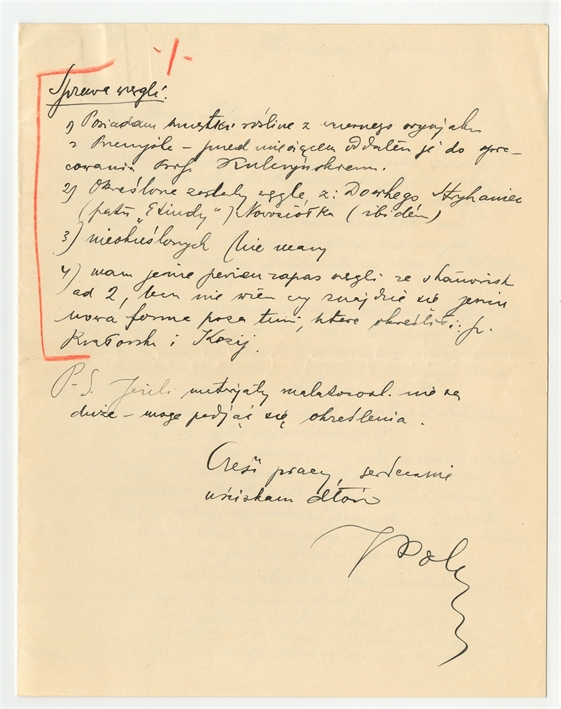 ·/·
Sprawa węgli:
1) Posiadam szczątki roślinne z czarnego
z Przemyśla – przed miesiącem oddałem je do opra-
cowania Prof. Kulczyńskiem.
2) Określone zostały węgle z: Dowhego, Stryhaniec
(patrz „Study”) Nowosiółka (ibidem)
3) nieokreślonych nie mam
4) mam jeszcze pewien zapas węgli ze stanowisk
ad 2, lecz nie wiem czy znajdzie się jeszcze
nowa forma poza temi, które określili: p.
i Kozij.
P-S. Jeżeli materjały malakozool. nie są
duże – mogę podjąć się określenia.
Cześć pracy, serdecznie
uściskam dłoń